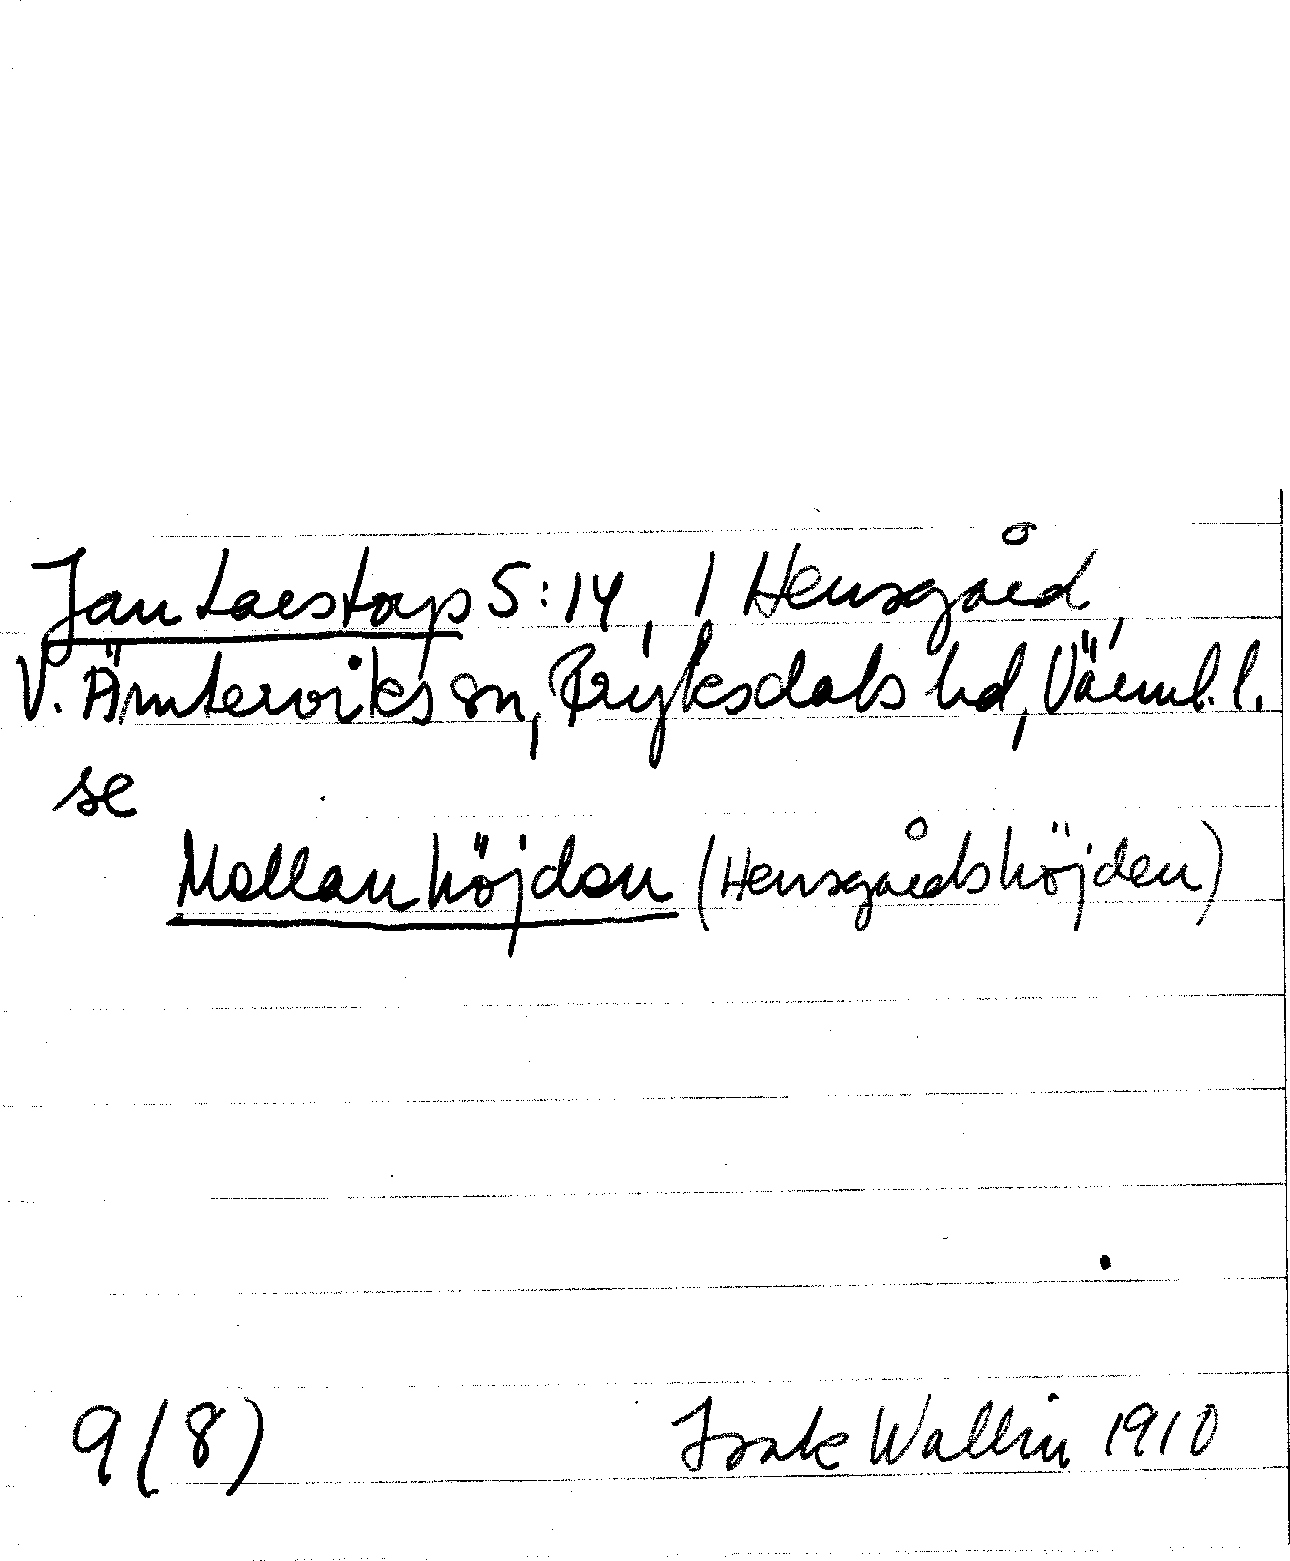 Jan Larstorp 5:14, 1 Hensgård,
V. Ämterviks sn, Fryksdals hd, Värml. l.
se
Mellanhöjden (Hensgårdshöjden)
9 (8) Isak Wallin 1910